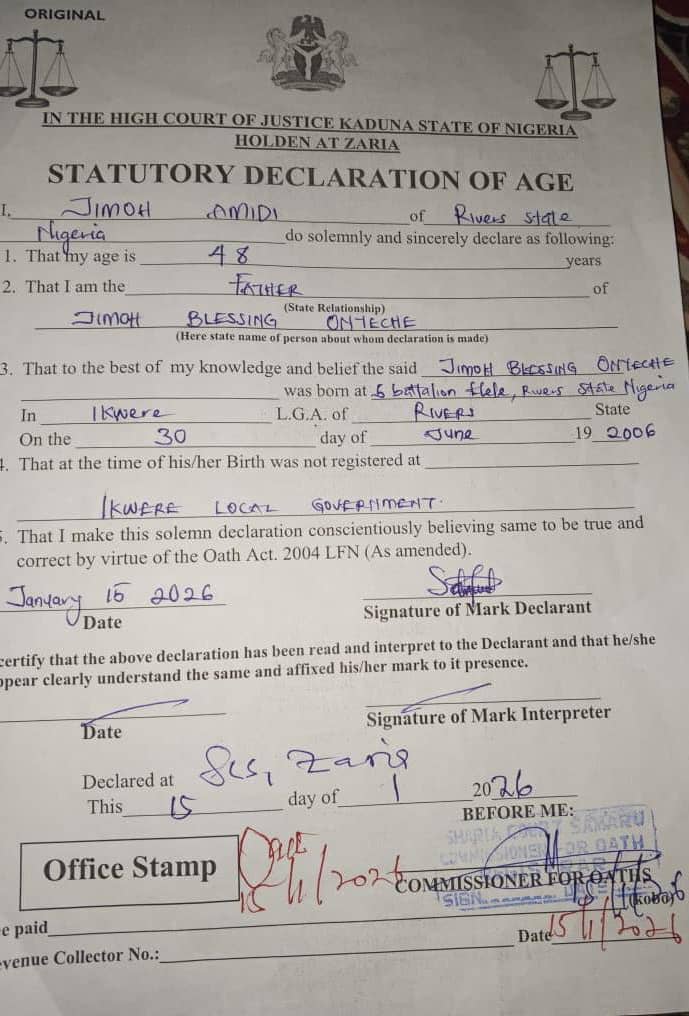 ORIGINAL
IN THE HIGH COURT OF JUSTICE KADUNA STATE OF NIGERIA
HOLDEN AT ZARIA
STATUTORY DECLARATION OF AGE
I, JIMOH AMIDI of Rivers state
Nigeria do solemnly and sincerely declare as following:
1. That my age is 48 years
2. That I am the FATHER of
(State Relationship)
JIMOH BLESSING ONYECHE
(Here state name of person about whom declaration is made)
3. That to the best of my knowledge and belief the said JIMOH BLESSING ONYECHE
was born at 5 battalion Elele, Rivers State Nigeria
In Ikwere L.G.A. of RIVERS State
On the 30 day of June 19 2006
4. That at the time of his/her Birth was not registered at
IKWERE LOCAL GOVERNMENT.
5. That I make this solemn declaration conscientiously believing same to be true and
correct by virtue of the Oath Act. 2004 LFN (As amended).
January 15 2026
Date Signature of Mark Declarant
certify that the above declaration has been read and interpret to the Declarant and that he/she
ppear clearly understand the same and affixed his/her mark to it presence.
Date Signature of Mark Interpreter
Declared at Zaria
This 15 day of 1 2026
BEFORE ME:
SHARIA COURT SAMARU
COMMISSIONER FOR OATH
Office Stamp
15/1/2026
COMMISSIONER FOR OATHS
SIGN
(kobo)
e paid
Date 15/1/2026
evenue Collector No.: